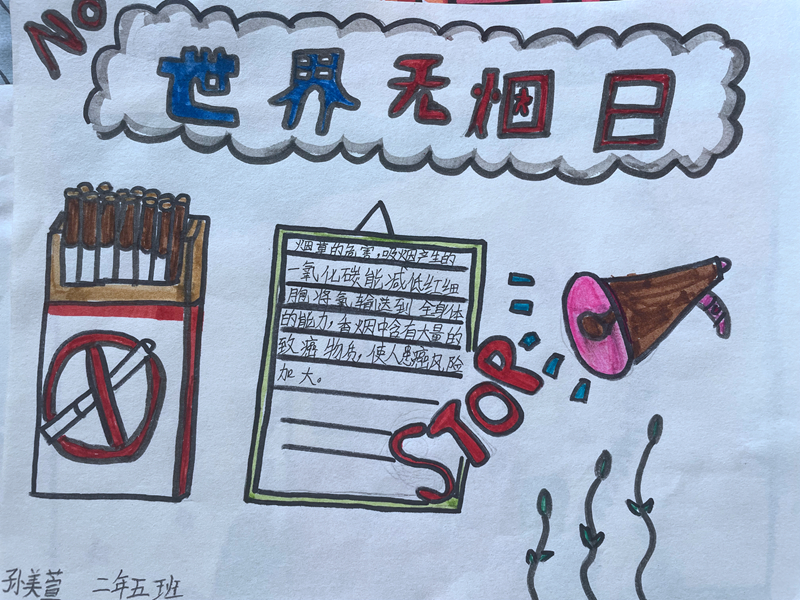 No
世界无烟日
烟草的危害,吸烟产生的
一氧化碳能减低红细
胞将氧输送到全身体
的能力,香烟中含有大量的
致癌物质,使人患癌风险
加大。
STOP
孙美萱 二年五班